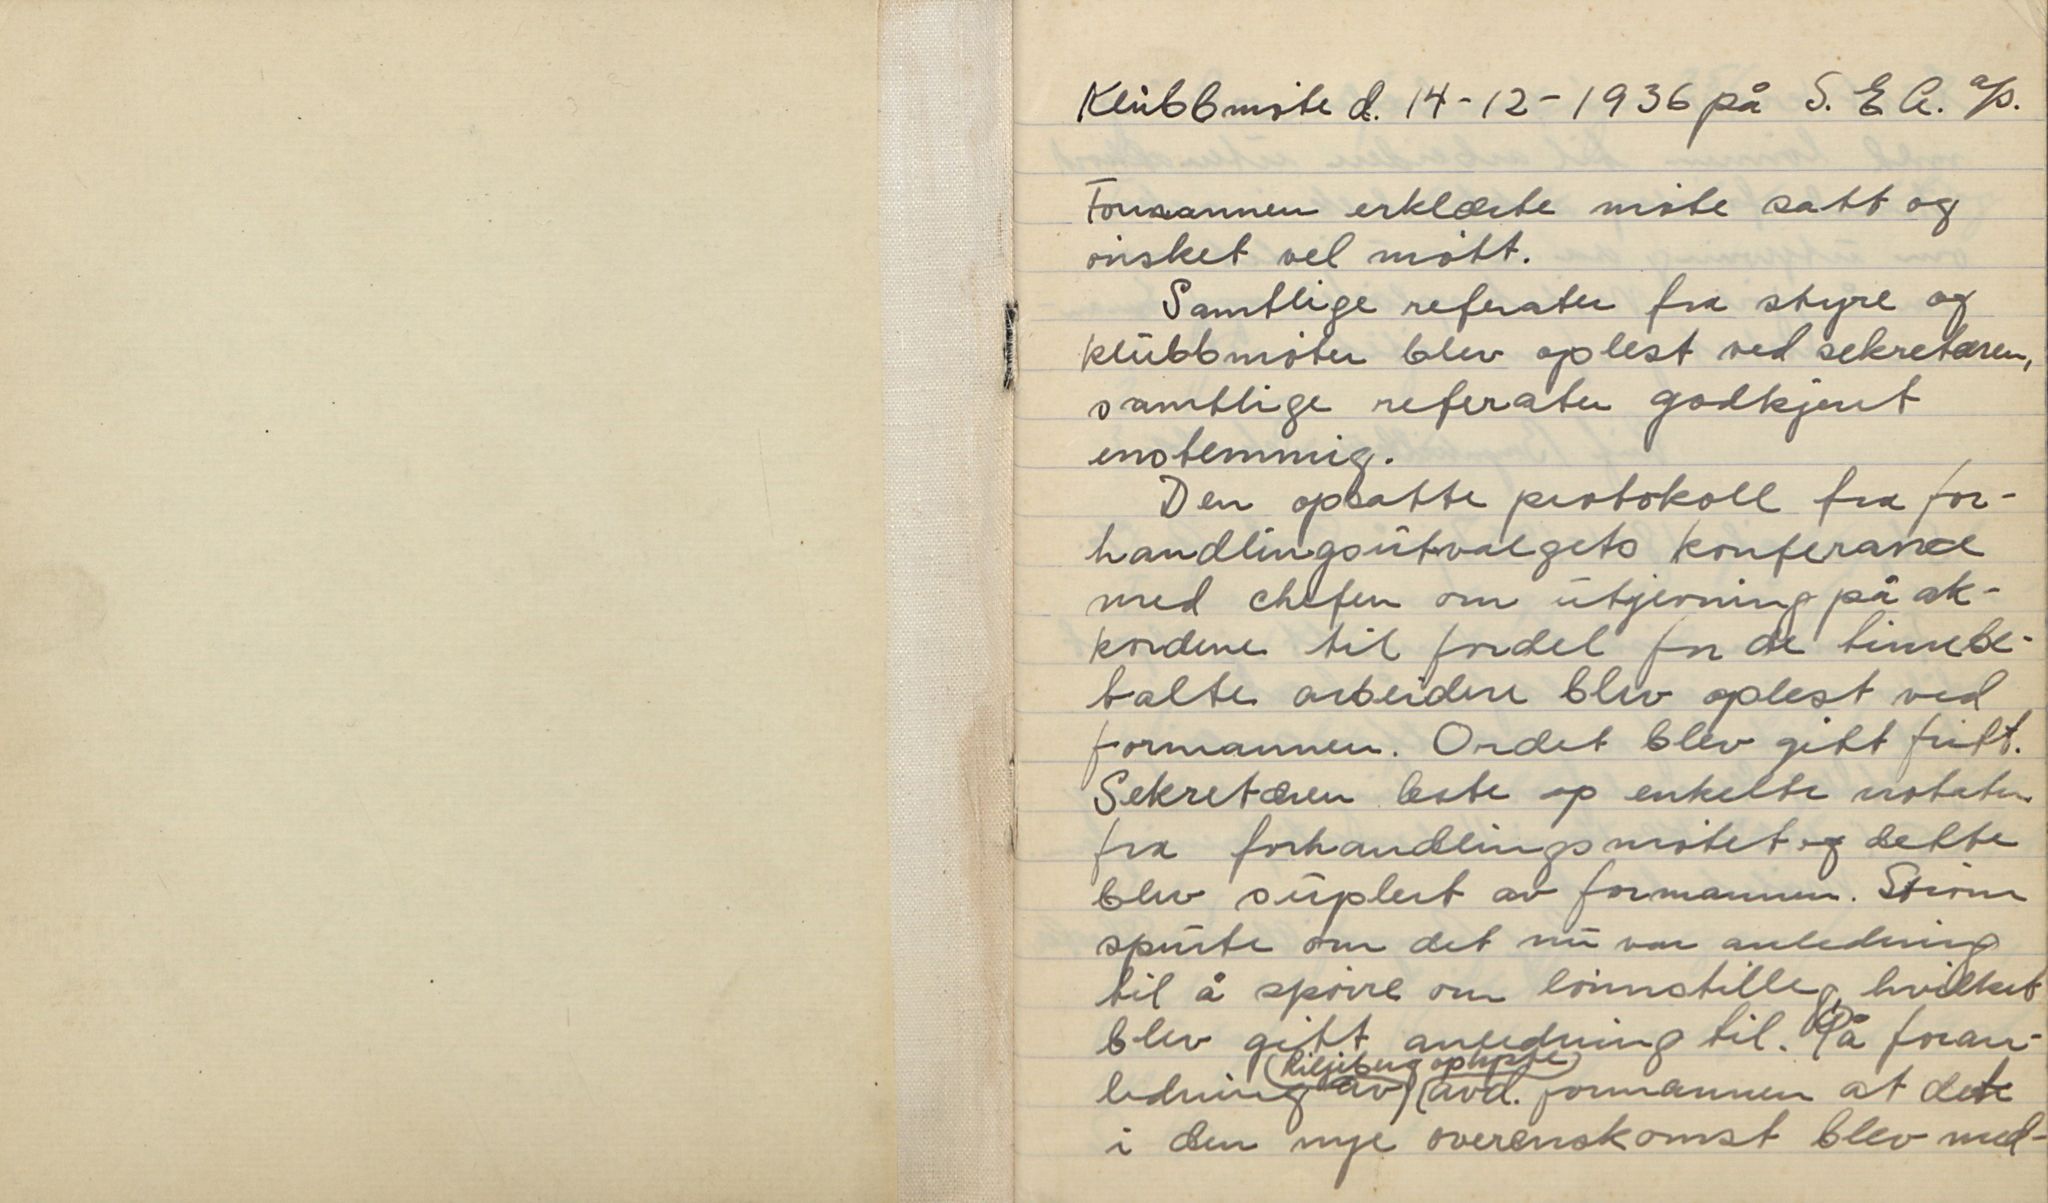 Klubbmøte d. 14-12-1936 på S. E A. a/s.
Formannen erklærte møte satt og
ønsket vel møtt.
Samtlige referater fra styre og
klubbmøter blev oplest ved sekretæren,
samtlige referater godkjent
enstemmig.
Den opsatte protokoll fra for-
handlingsutvalgets konferanse
med chefen om utjevning på ak-
kordene til fordel for de timebe-
talte arbeidere blev oplest ved
formannen. Ordet blev gitt fritt.
Sekretæren leste op enkelte notater
fra forhandlingsmøtet og dette
blev suplert av formannen. Strøm
spurte om det nu var anledning
til å spørre om lønnstilleg, hvilket
blev gitt anledning til. På foran-
(Liljeberg oplyste)
ledning av) (avd. formannen at dette
i den nye overenskomst blev med-